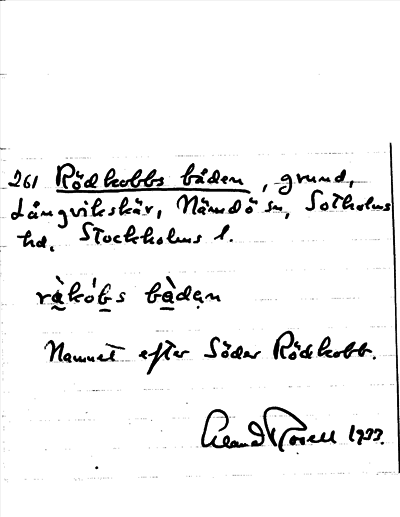 261 Rödkobbs båden, grund,
Långvikskär, Nämdö sn, Sotholms
hd, Stockholms l.
ràkób̤s bàden
Namnet efter Söder Rödkobb.
1933.